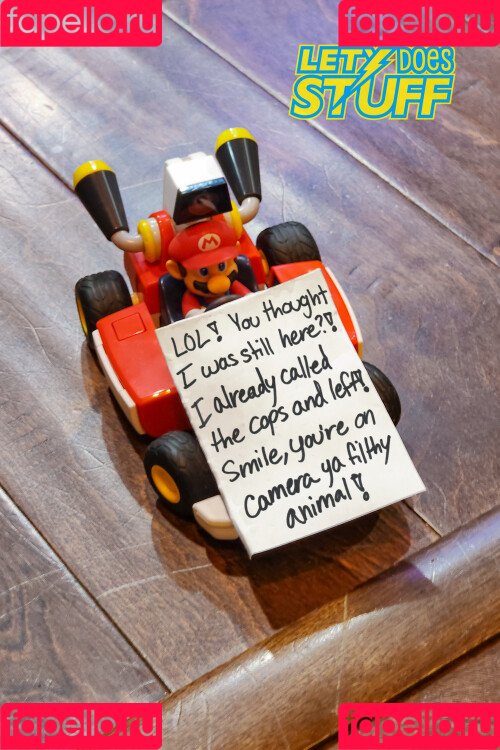 fapello.ru fapello.ru
LETY DOES
STUFF
M
LOL! You thought
I was still here?!
I already called
the cops and left!
Smile, you're on
camera ya filthy
animal!
fapello.ru fapello.ru